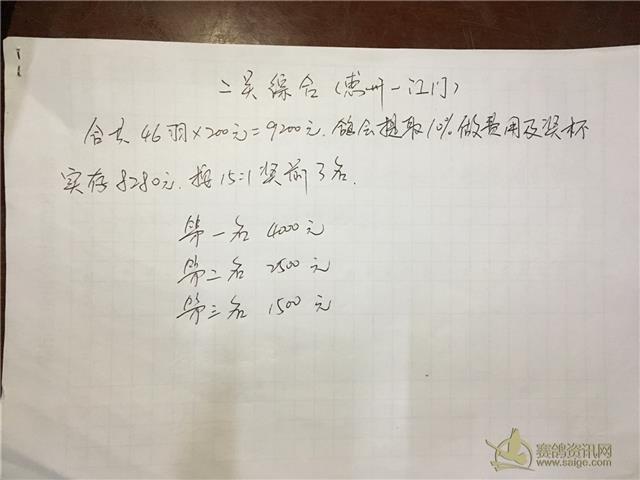 二关综合(惠州一江门)
合共46羽×200元=9200元.鸽会提取10%做费用及奖杯
实存8280元.按15:1奖前3名.
第一名 4000元
第二名 2500元
第三名 1500元
赛鸽资讯网
www.saige.com